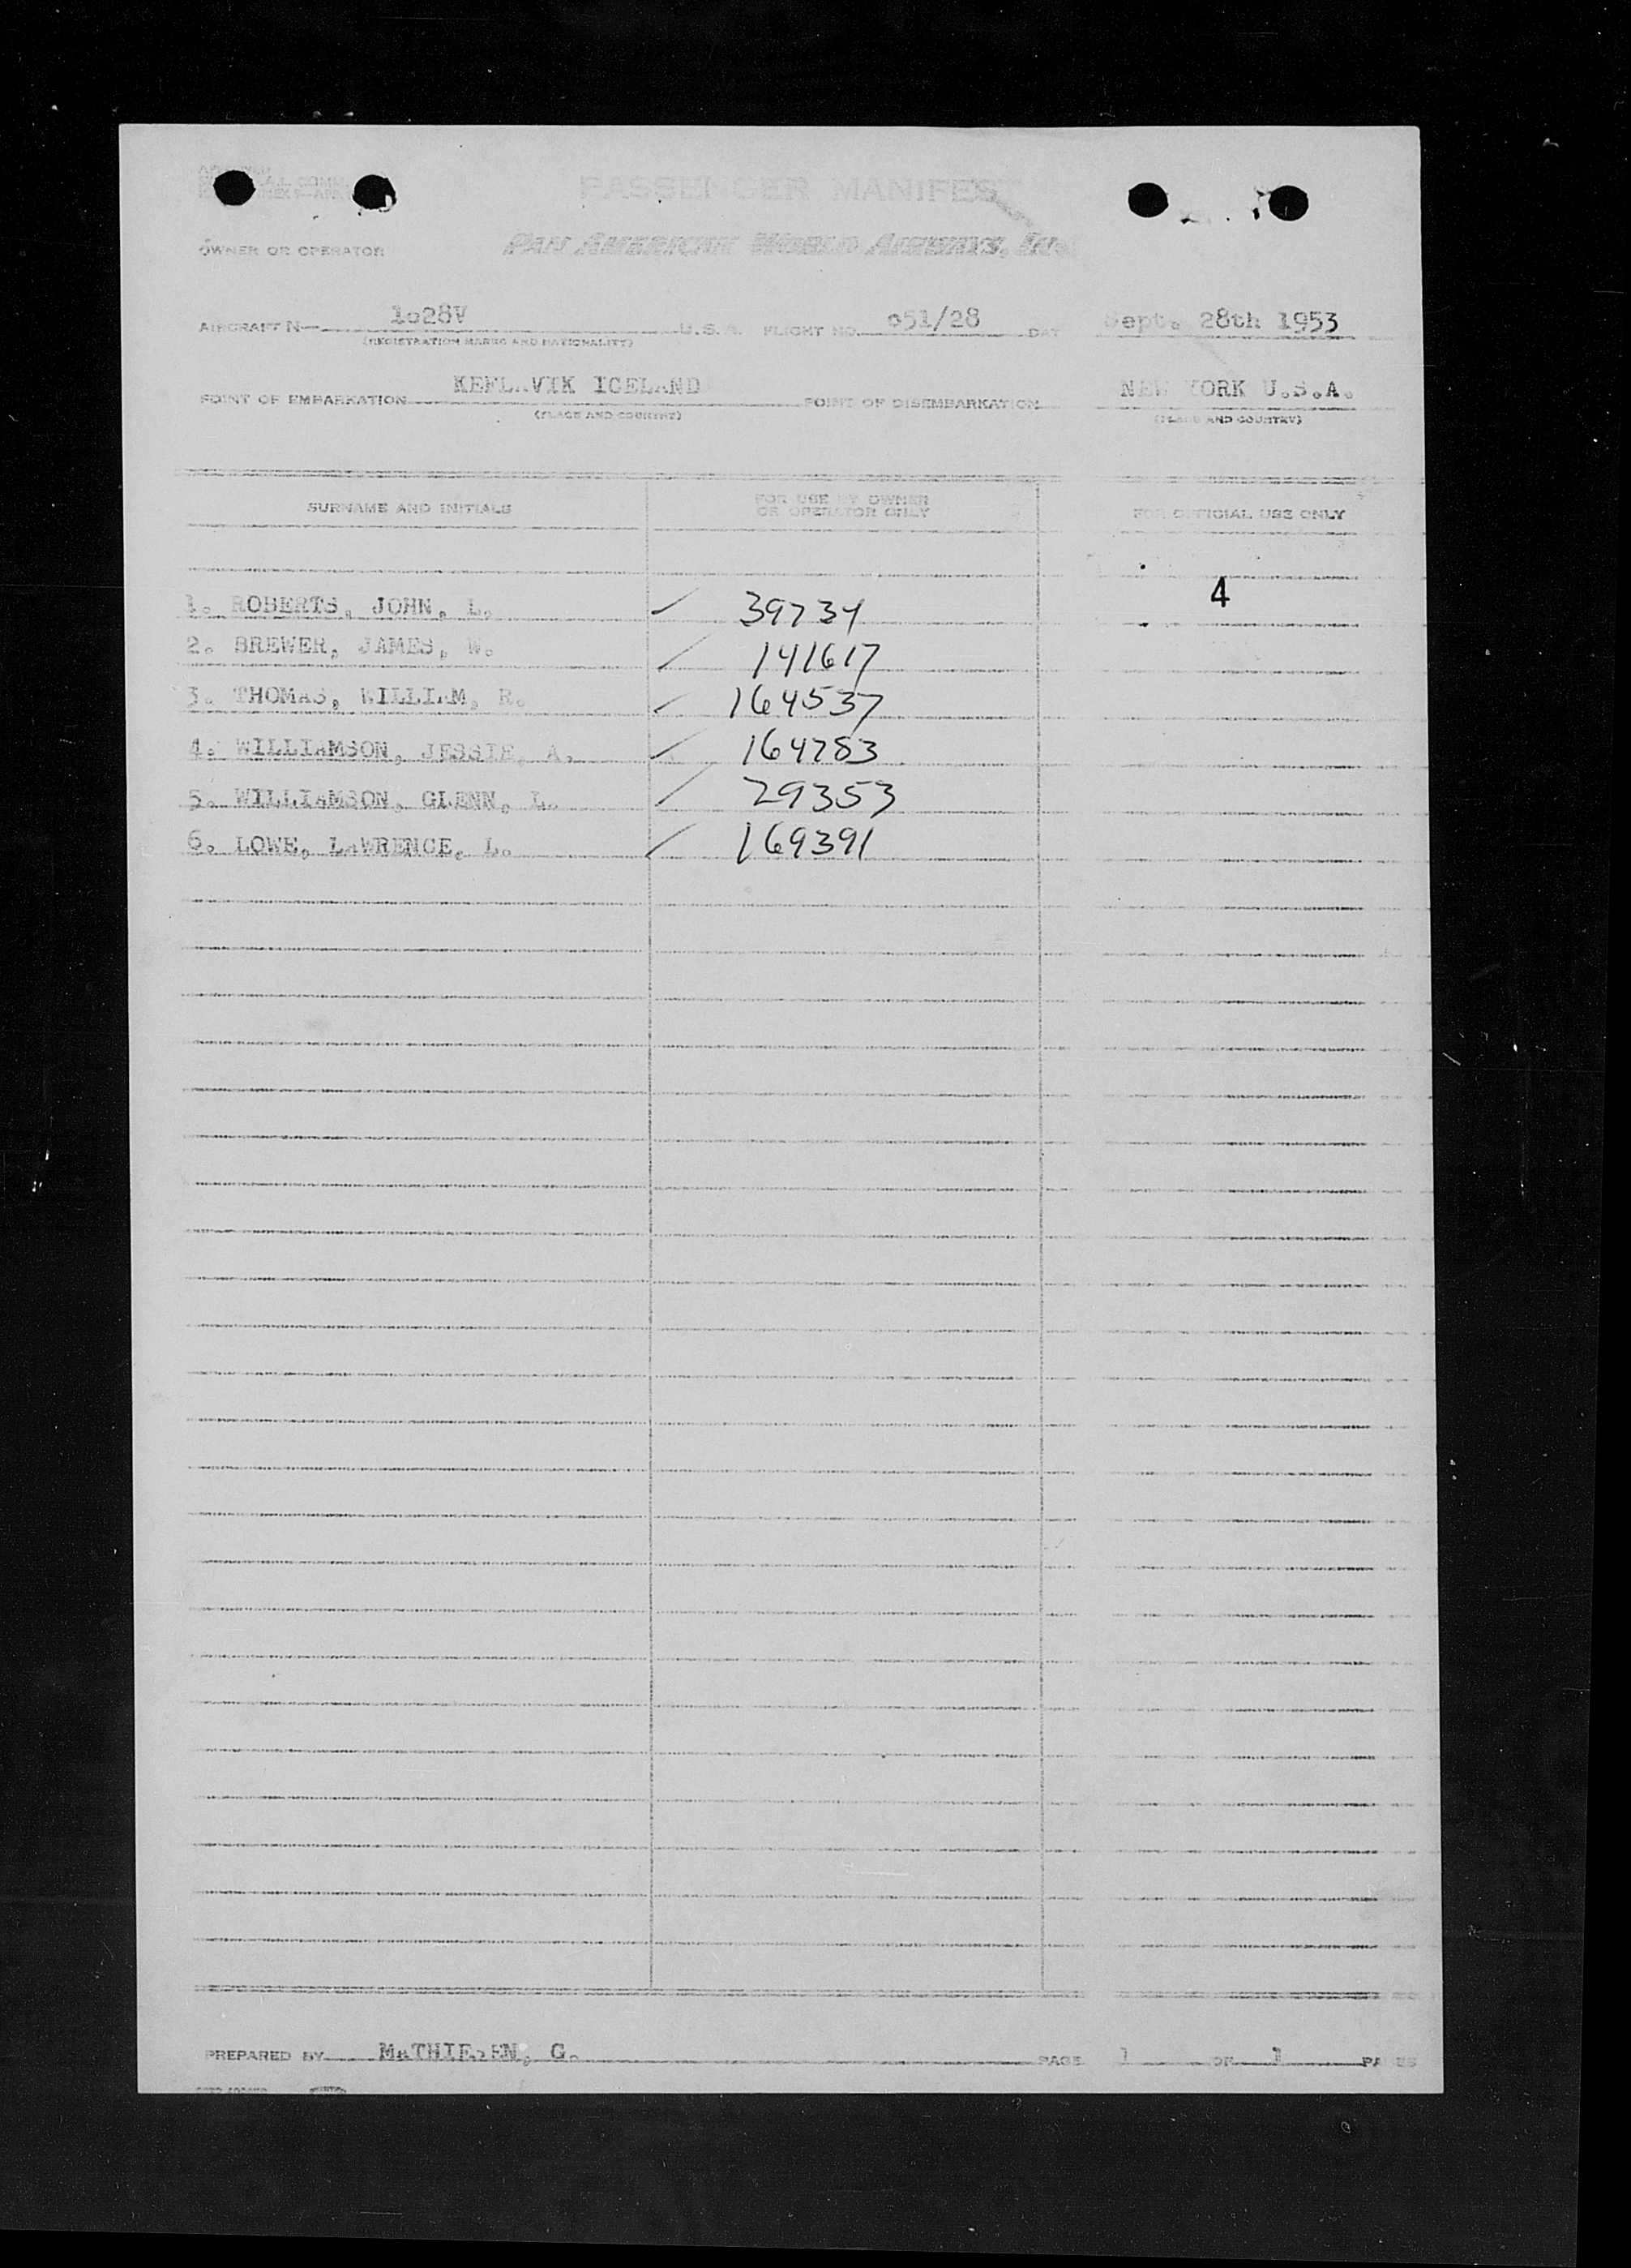 PASSENGER MANIFEST
OWNER OR OPERATOR PAN AMERICAN WORLD AIRWAYS, INC.
AIRCRAFT N— 1o28V U.S.A. FLIGHT NO. o51/28 DAT Sept. 28th 1953
(REGISTRATION MARKS AND NATIONALITY)
POINT OF EMBARKATION KEFLAVIK ICELAND POINT OF DISEMBARKATION NEW YORK U.S.A.
(PLACE AND COUNTRY) (PLACE AND COUNTRY)
SURNAME AND INITIALS FOR USE BY OWNER OR OPERATOR ONLY FOR OFFICIAL USE ONLY
4
1. ROBERTS, JOHN, L. ✓ 39734
2. BREWER, JAMES, W. ✓ 141617
3. THOMAS, WILLIAM, R. ✓ 164537
4. WILLIAMSON, JESSIE, A. ✓ 164783
5. WILLIAMSON, GLENN, L. ✓ 29353
6. LOWE, LAWRENCE, L. ✓ 169391
PREPARED BY MATHIESEN, G. PAGE 1 OF 1 PAGES